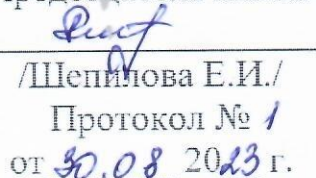 /Шепилова Е.И./
Протокол № 1
от 30.08 2023 г.